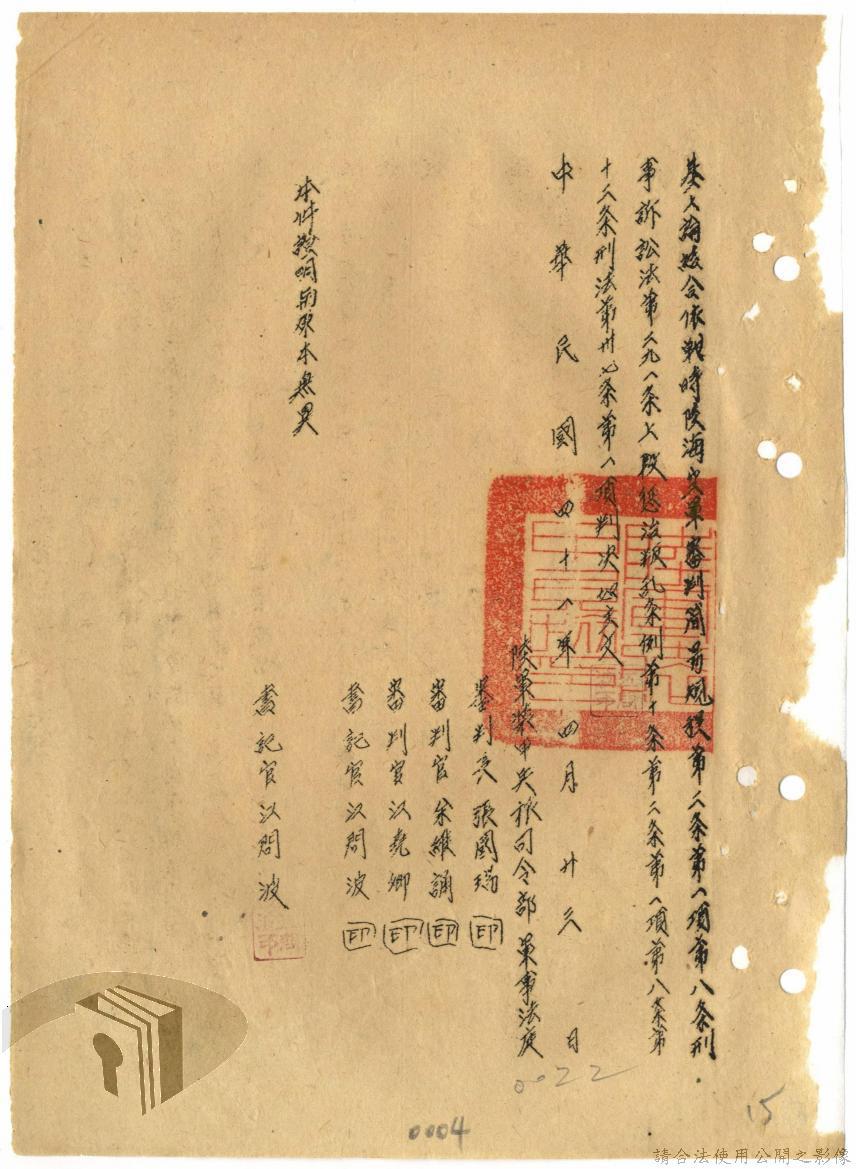 基上論結合依戰時陸海空軍審判簡易規程第二条第一項第八条刑
事訴訟法第二九一条上段懲治叛乱条例第十条第二条第一項第八条第
十二条刑法第卅七条第一項判決如主文
中華民國四十一年四月廿六日
陸軍裝甲兵旅司令部軍事法庭
審判長張國瑞 印
審判官 維誦 印
審判官 堯卿 印
書記官 問波 印
本件證明與原本無異
書記官 問波
0022
15
0004
請合法使用公開之影像